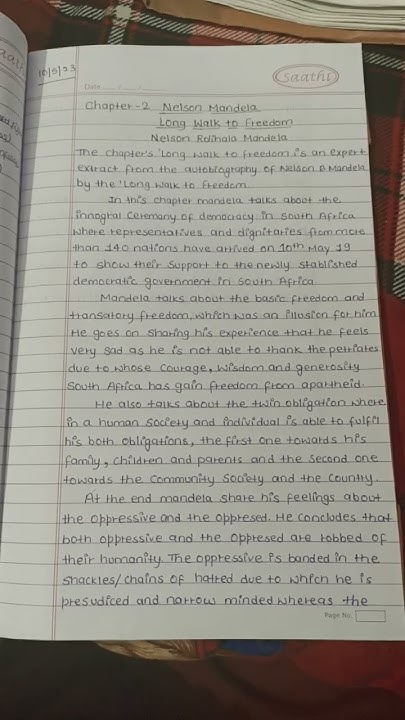 10/5/23
Saathi
Date ..... / ..... / .....
Chapter-2 Nelson Mandela
Long Walk to Freedom
Nelson Rolihala Mandela
The chapter's 'Long walk to freedom is an expert
extract from the autobiography of Nelson R Mandela
by the 'Long walk to Freedom
In this chapter mandela talks about the
innoghal Ceremony of democracy in South Africa
where representatives and dignitaries from more
than 140 nations have arrived on 10th May 19
to show their support to the newly stablished
democratic government in south Africa
Mandela talks about the basic freedom and
transatory freedom, which was an illusion for him
He goes on sharing his experience that he feels
very sad as he is not able to thank the petriates
due to whose courage, wisdom and generosity
South Africa has gain freedom from apartheid.
He also talks about the twin obligation where
in a human society and individual is able to fulfil
his both obligations, the first one towards his
family, children and parents and the second one
towards the Community Society and the Country.
At the end mandela share his feelings about
the oppressive and the oppresed. He concludes that
both oppressive and the oppresed are robbed of
their humanity. The oppressive is banded in the
shackles/chains of hatred due to which he is
presudiced and narrow minded whereas the
Page No.